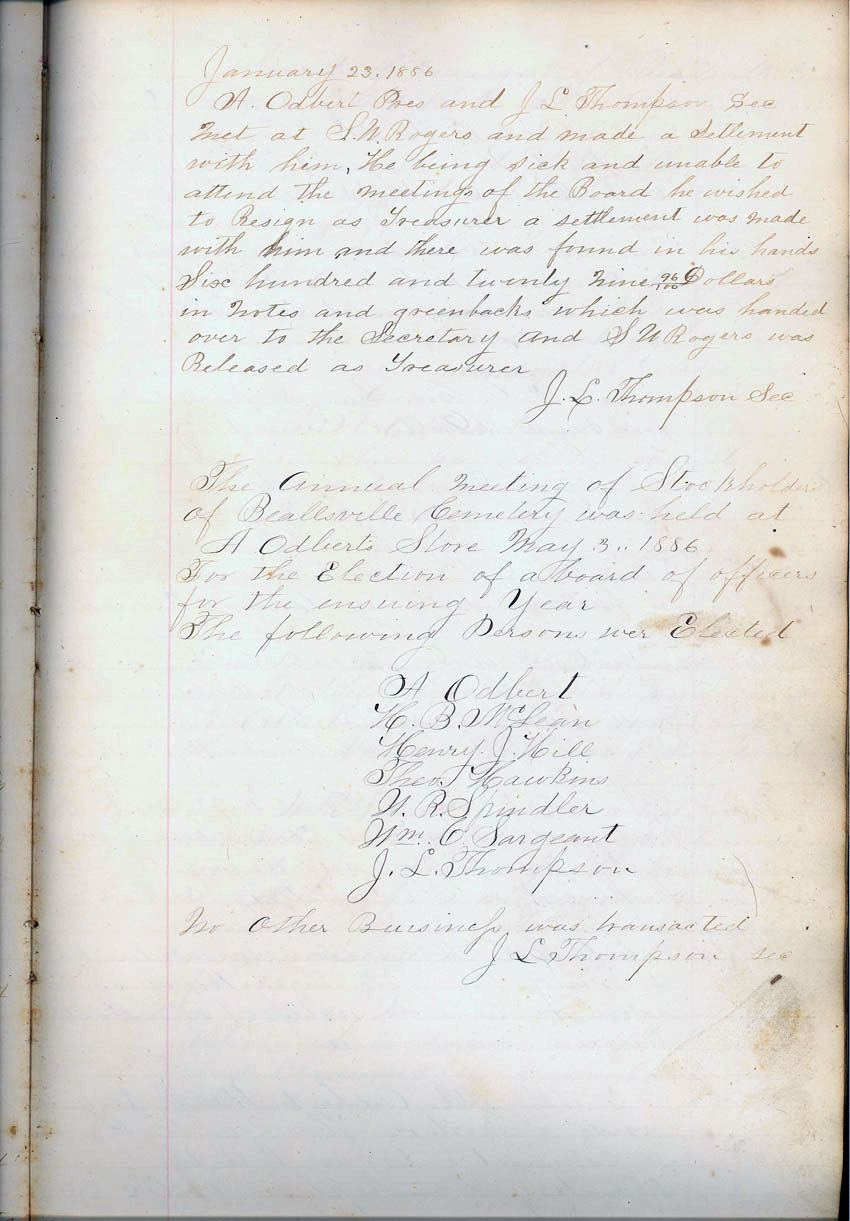 January 23. 1886
A. Odbert Pres and J L Thompson Sec
Met at S. W. Rogers and made a Settlement
with him, He being sick and unable to
attend the meetings of the Board he wished
to Resign as Treasurer a settlement was made
with him and there was found in his hands
Six hundred and twenty Nine 96/100 Dollars
in Notes and greenbacks which was handed
over to the Secretary and S W Rogers was
Released as Treasurer
J. L. Thompson Sec
The Annual Meeting of Stockholders
of Beallsville Cemetery was held at
A Odberts Store May 3.. 1886
For the Election of a board of officers
for the ensuing Year
The following Persons wer Elected
A Odbert
H. B. McLean
Henry. J. Hill
Theo. Hawkins
W. R. Spindler
Wm. E. Sargeant
J. L. Thompson
No Other Buisiness was transacted
J L Thompson sec